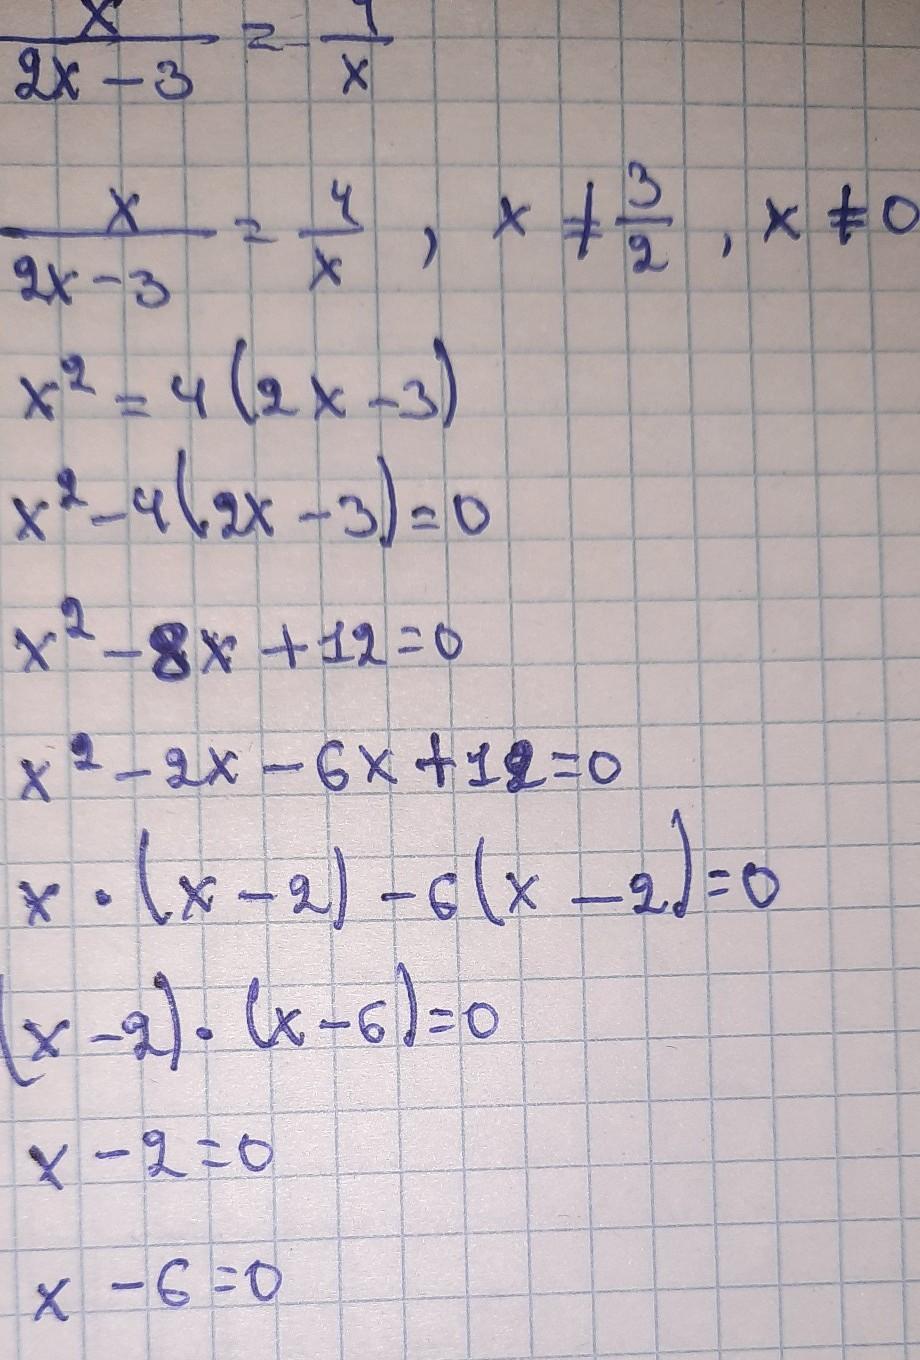 x/(2x-3) = 4/x
x/(2x-3) = 4/x, x ≠ 3/2, x ≠ 0
x² = 4(2x-3)
x² - 4(2x-3) = 0
x² - 8x + 12 = 0
x² - 2x - 6x + 12 = 0
x · (x-2) - 6(x-2) = 0
(x-2) · (x-6) = 0
x - 2 = 0
x - 6 = 0